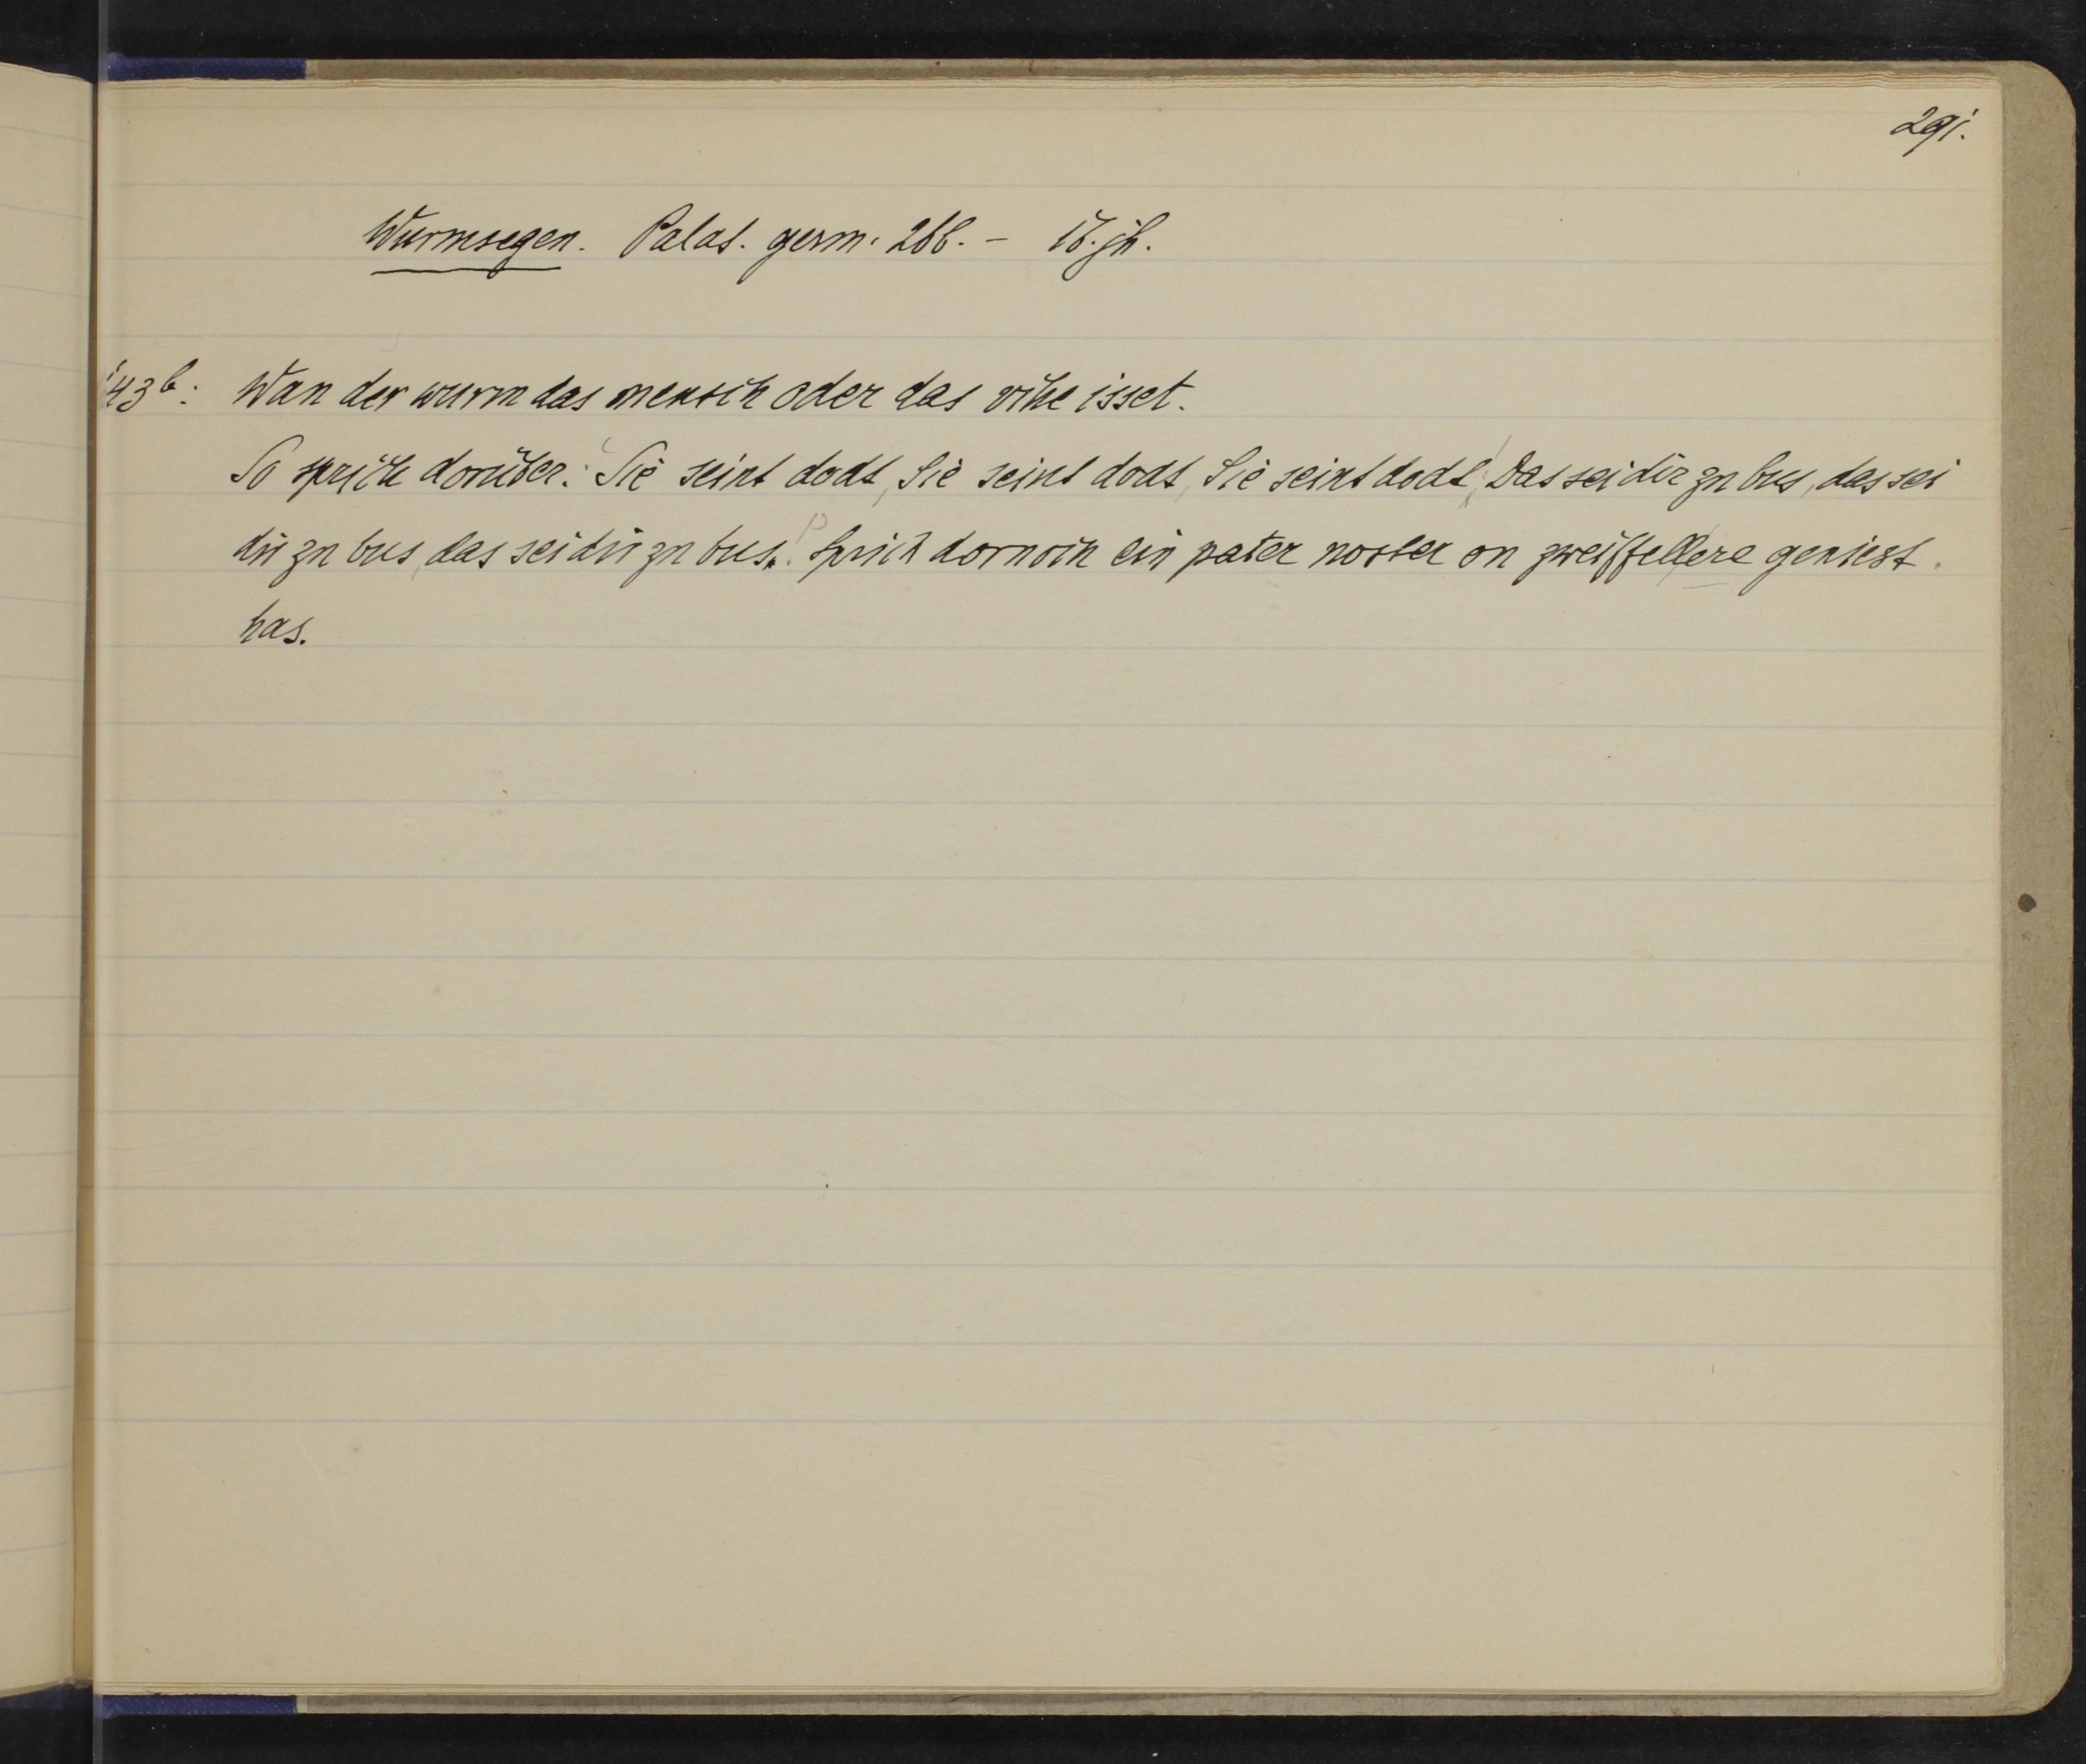 291.
Wurmsegen. Palat. germ. 266. – 16. jh.
143b. Wan der wurm das mensch oder das vihe isset.
So sprich dorüber: Sie seint dodt, Sie seint dodt, Sie seint dodt, Das sei dir zu bus, das sei
dir zu bus, das sei dir zu bus. Sprich dornoch ein pater noster on zweiffell ere geniest
has.